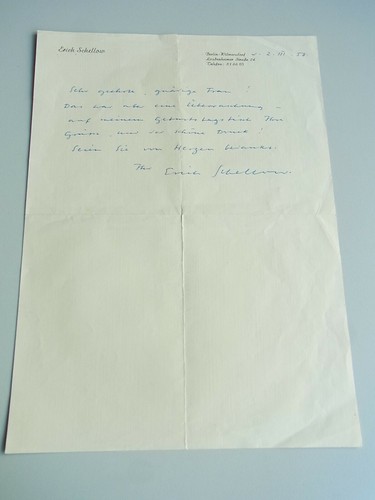 Erich Schellow
Berlin-Wilmersdorf
Straße
Telefon:
Sehr geehrte, gnädige Frau!
Das war aber eine Überraschung –
auf meinem Geburtstagstisch Ihre
Grüße, und der schöne
Seien Sie von Herzen bedankt.
Ihr Erich Schellow.